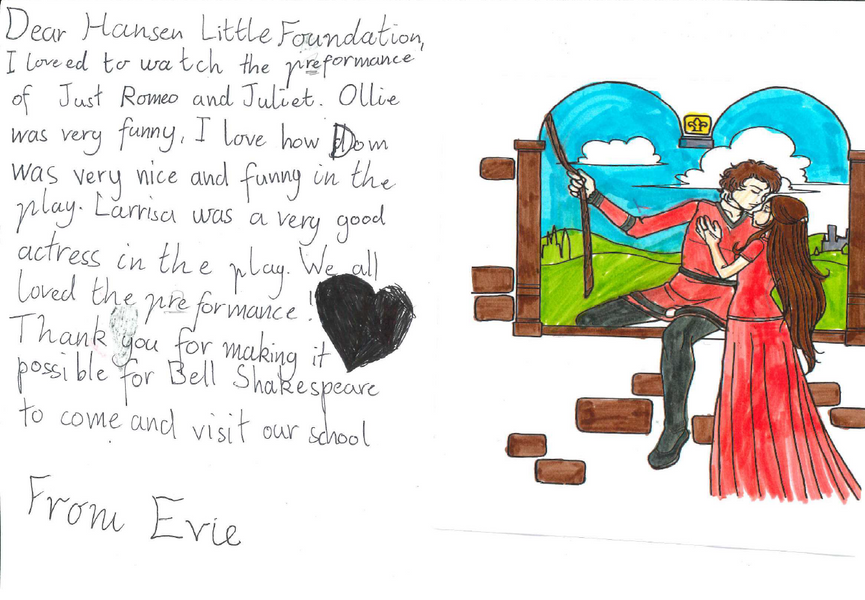 Dear Hansen Little Foundation,
I loveed to watch the preformance
of Just Romeo and Juliet. Ollie
was very funny, I love how Dom
was very nice and funny in the
play. Larrisa was a very good
actress in the play. We all
loved the preformance!
Thank you for making it
possible for Bell Shakespeare
to come and visit our school
From Evie